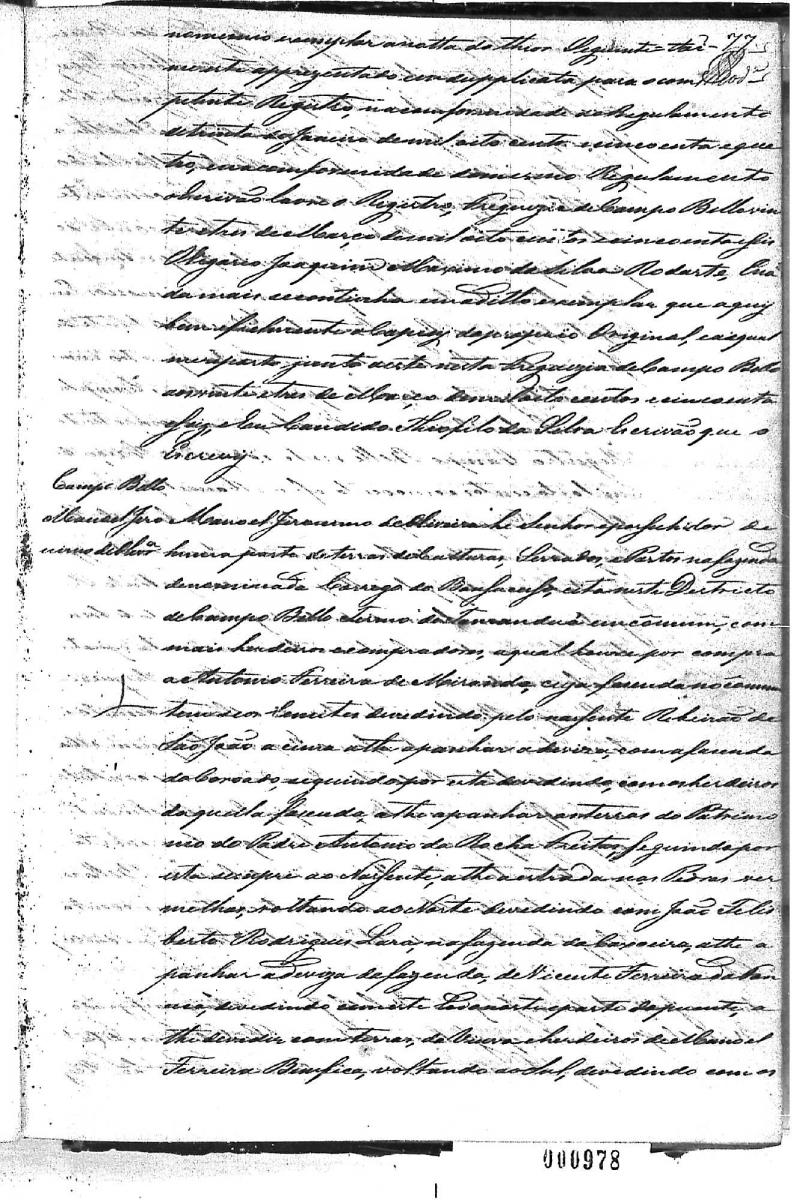 no mesmo exemplar a notta do thior Seguinte = Foi-
77
me este apprezentado em dupplicata para o com
petente Registro, na comformidade do Regulamento
de trinta de Janeiro de mil oito cento e cincoenta e qua
tro, em comformidade do mesmo Regulamento
o Escrivão lavre o Registro, Freguezia de Campo Bello vin
te e tres de Março de mil oito centos e cincoenta e seis
O Vigario Joaquim Maximo da Silva Rodarte, E na
da mais se continha em o ditto exemplar que aquy
bem e fielmente o Copiey do proprio Original, ea qual
me reporto junto a este nesta Freguezia de Campo Bello
aos vinte e tres de Março de mil oito centos e cincoenta
e Seiz, e Eu Candido Theofilo da Silva Escrivão que o
Escrevy
Campo Bello
Manoel Jero
nimo de Olivr.ª
Manoel Jeronimo de Oliveira he Senhor e possuhidor de
huma parte de terras de Culturas, Serrados, e Pastos na fazenda
denominada Corrego do Bonsucesso, cita neste Destricto
de Campo Bello Termo do Tamanduá em cômum, com
mais herdeiros e compradores, a qual houve por compra
a Antonio Ferreira de Miranda, cuja fazenda no cômum
tem seos Lemites devedindo pelo nassente Ribeirão de
São João a cima athe apanhar a deviza, com a fazenda
do Coroado, seguindo por esta devedindo, com os herdeiros
daquella fazenda, athe apanhar as terras do Patrimo
nio do Padre Antonio da Rocha Freitas, Seguindo por
esta sempre ao Nassente, athe a estrada nas Pedras ver
melhas, voltando ao Norte devedindo com João Felis
berto Rodrigues Lara, na fazenda da Caxoeira, athe a
panhar a deviza da fazenda, de Vicente Ferreira da
devedindo com este e parte do puente, a
the devedir com terras, da Viuva e herdeiros de Manoel
Ferreira Bemfica, voltando ao Sul, devedindo com os
000978